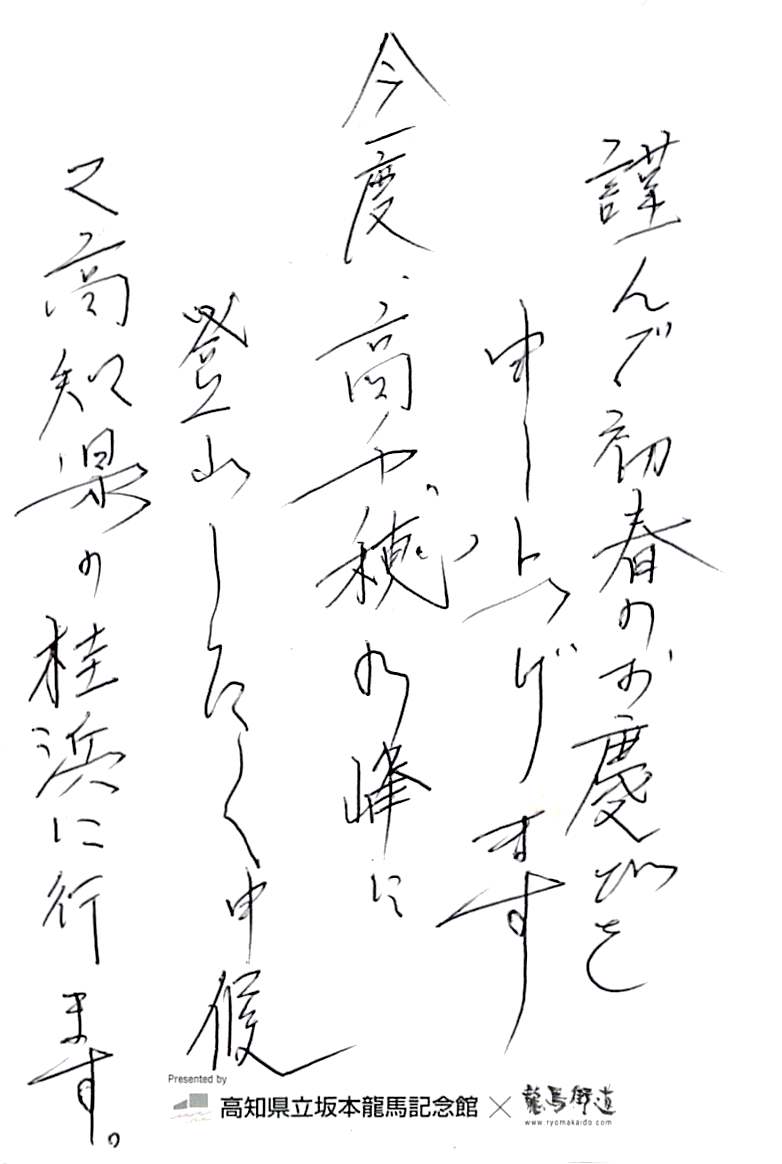 謹んで初春のお慶びを
申し上げます
今一度、高千穂の峰に
登山したく申候
又高知県の桂浜に行
ます。
Presented by
高知県立坂本龍馬記念館 × 龍馬街道
www.ryomakaido.com